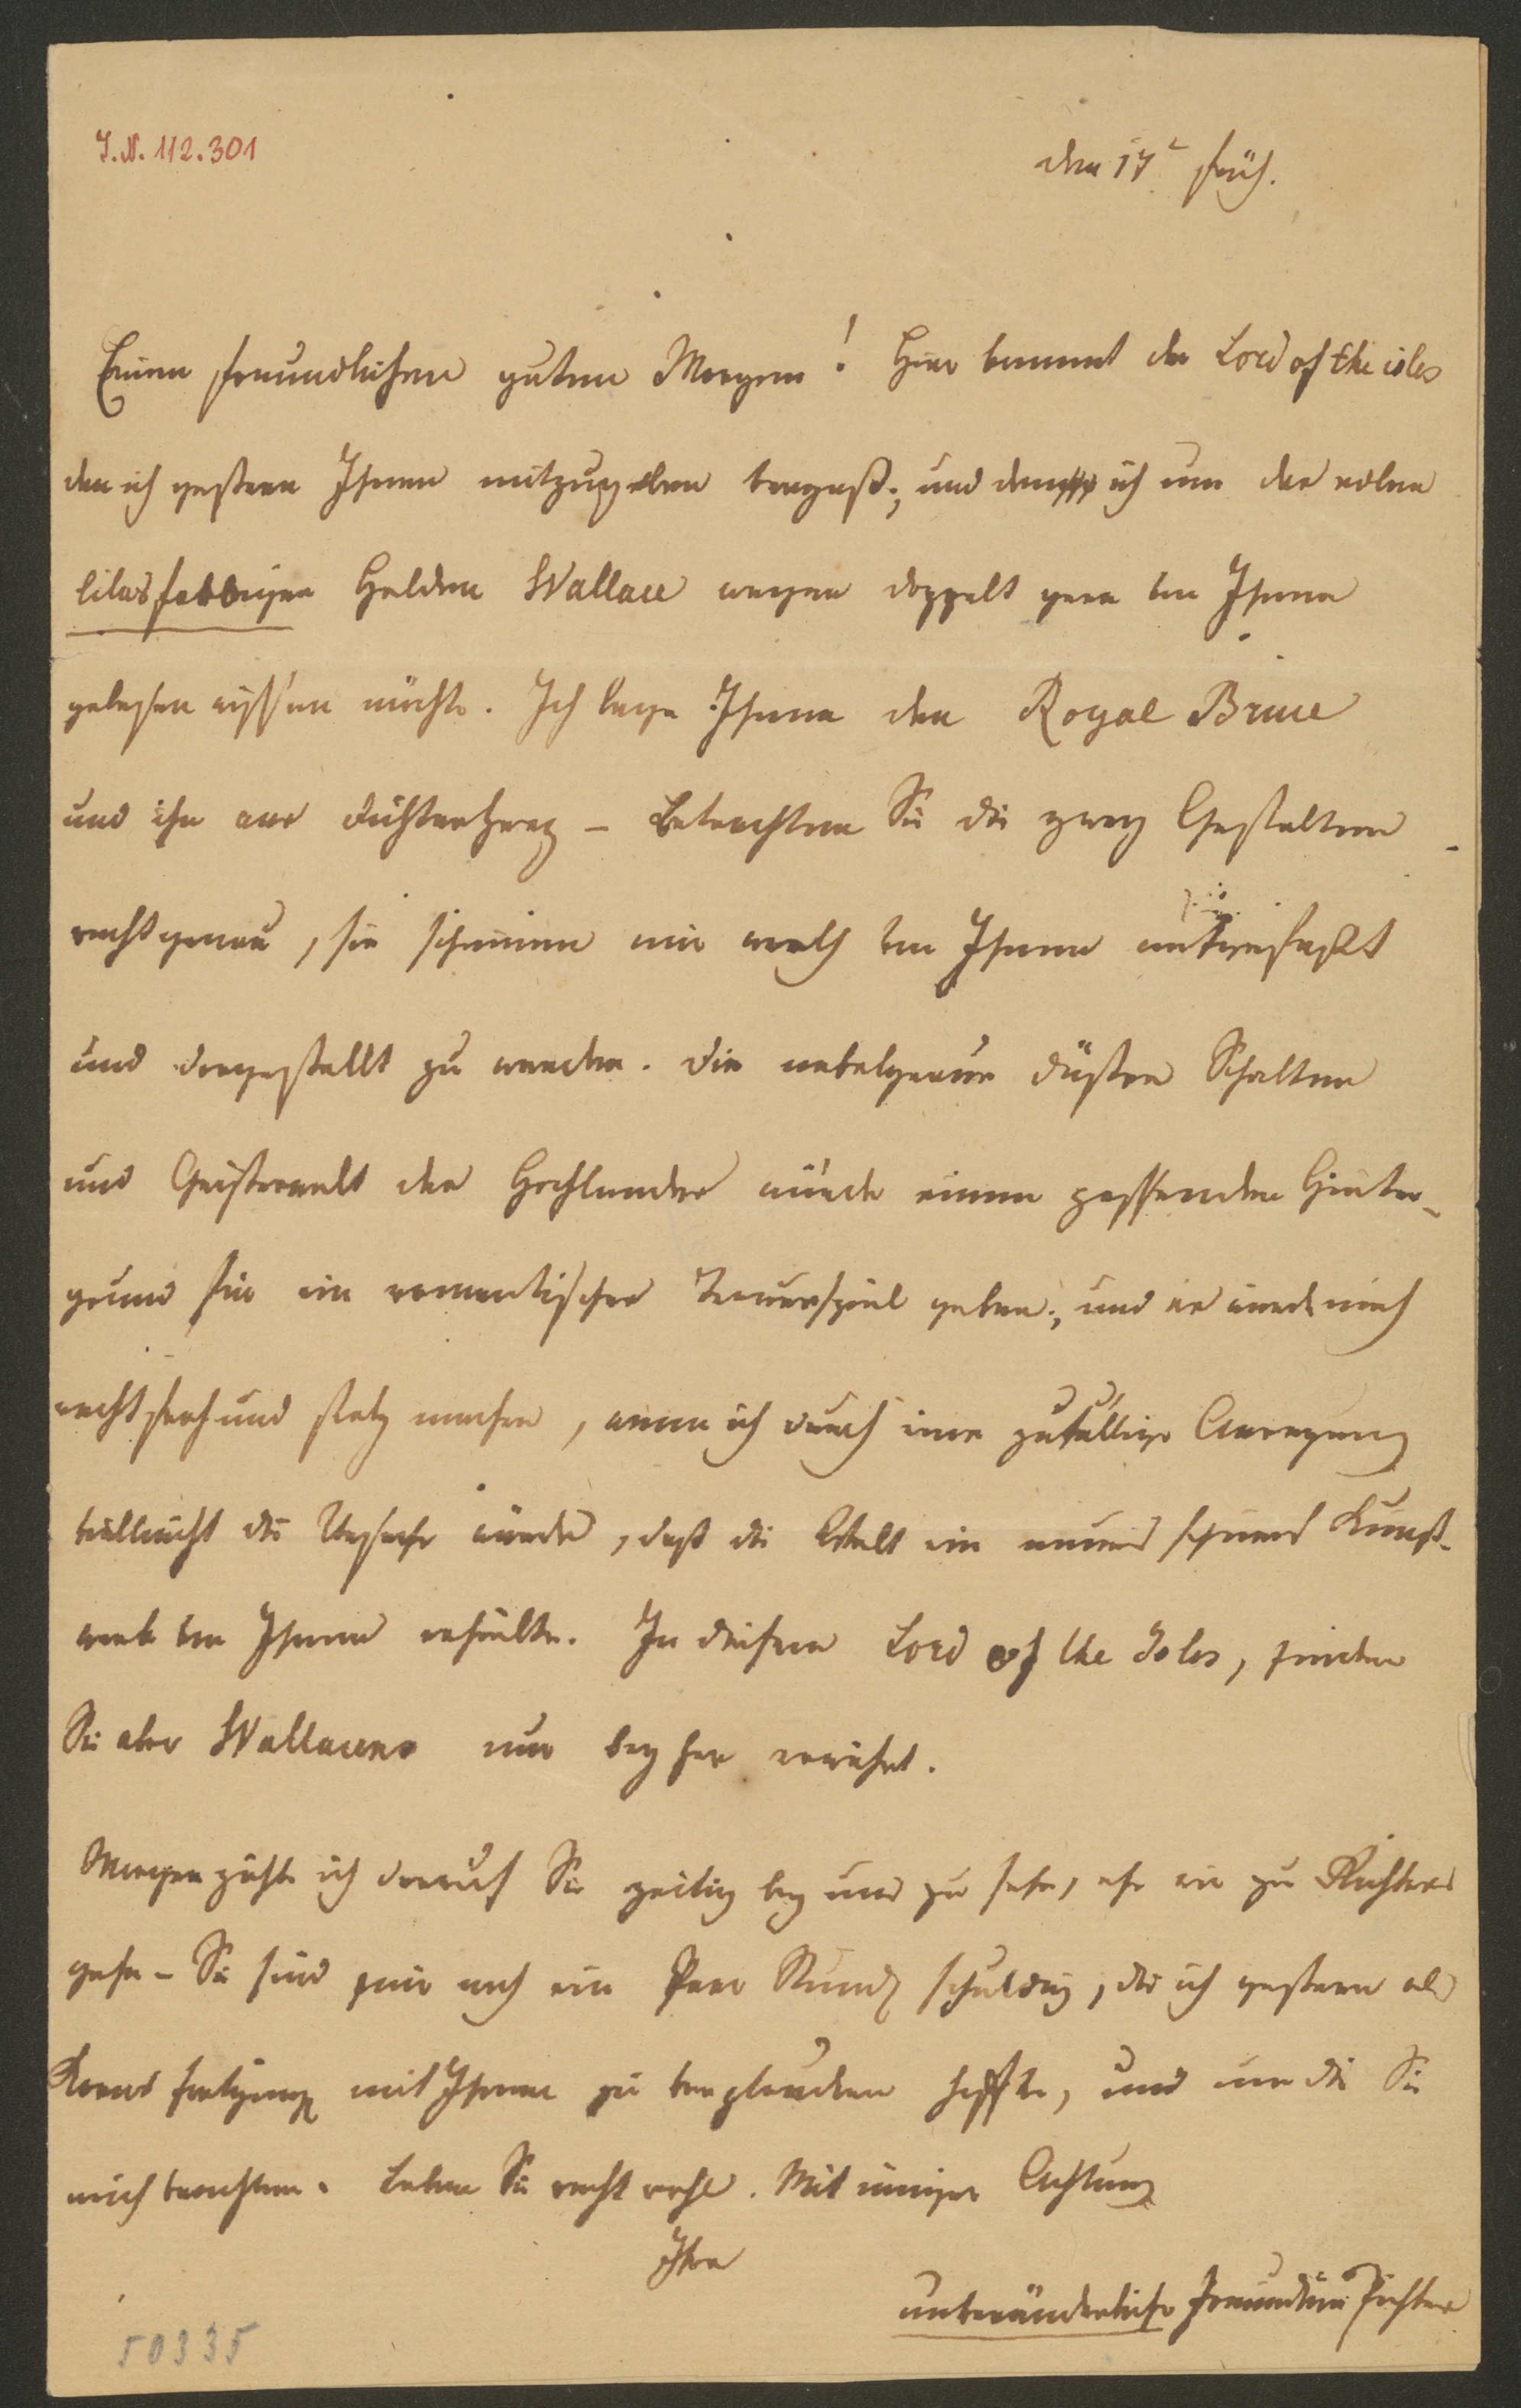 J.N. 112.301
den 17t früh.
Einen freundlichen guten Morgen! Hier kommt der Lord of the isles
den ich gestern Ihnen mitzugeben vergaß; und den ich um des edlen
lilasfarbigen Helden Wallace wegen doppelt gern von Ihnen
gelesen wissen möchte. Ich lege Ihnen den Royal Bruce
und ihn ans Dichterherz – Betrachten Sie die zwey Gestalten
recht genau, sie scheinen mir werth von Ihnen aufgefaßt
und dargestellt zu werden. Die nebelgraue düstre Schatten
und Geisterwelt der Hochlander würde einen passenden Hinter-
grund für ein romantisches Trauerspiel geben; und es würde mich
recht froh und stolz machen, wenn ich durch eine zufällige Anregung
vielleicht die Ursache würde, daß die Welt ein neues schönes Kunst-
werk von Ihnen erhielte. In diesem Lord of the Isles, finden
Sie aber Wallacens nur beyher erwähnt.
Morgen zähle ich darauf Sie zeitig bey uns zu sehn, ehe wir zu Richters
gehn – Sie sind mir noch ein Paar Stunden schuldig, die ich gestern als
mit Ihnen zu verplaudern hoffte, und um die Sie
mich brachten. Leben Sie recht wohl. Mit inniger Achtung
Ihre
unveränderliche Freundinn Pichler
50335